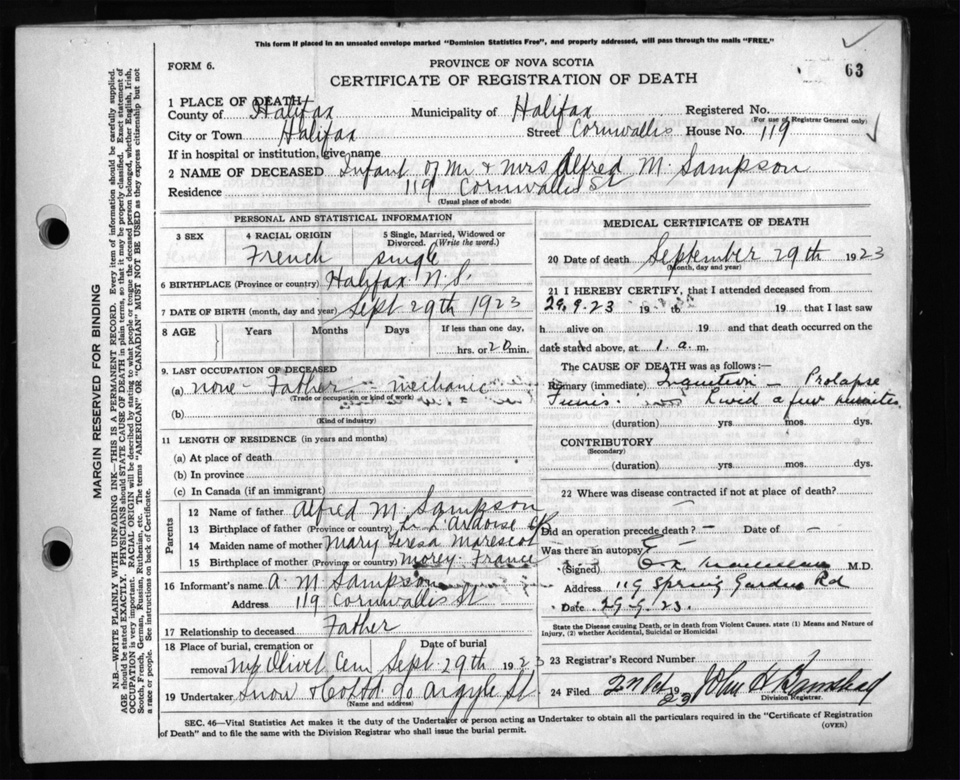 This form if placed in an unsealed envelope marked "Dominion Statistics Free", and properly addressed, will pass through the mails "FREE."
FORM 6.
PROVINCE OF NOVA SCOTIA
CERTIFICATE OF REGISTRATION OF DEATH
63
1 PLACE OF DEATH
County of Halifax Municipality of Halifax Registered No.
(For use of Registrar General only)
City or Town Halifax Street Cornwallis House No. 119
If in hospital or institution, give name
2 NAME OF DECEASED Infant of Mr & Mrs Alfred M. Sampson
Residence 119 Cornwallis St
(Usual place of abode)
PERSONAL AND STATISTICAL INFORMATION
3 SEX 4 RACIAL ORIGIN 5 Single, Married, Widowed or Divorced. (Write the word.)
French single
6 BIRTHPLACE (Province or country) Halifax N.S.
7 DATE OF BIRTH (month, day and year) Sept 29th 1923
8 AGE Years Months Days If less than one day,
hrs. or 20 min.
9. LAST OCCUPATION OF DECEASED
(a) none - Father - mechanic
(Trade or occupation or kind of work)
(b)
(Kind of industry)
11 LENGTH OF RESIDENCE (in years and months)
(a) At place of death
(b) In province
(c) In Canada (if an immigrant)
Parents
12 Name of father Alfred M. Sampson
13 Birthplace of father (Province or country) L'Ardoise CB
14 Maiden name of mother Mary Teresa
15 Birthplace of Mother (Province or country) Morey France
16 Informant's name A. M. Sampson
Address 119 Cornwallis St
17 Relationship to deceased Father
18 Place of burial, cremation or removal Date of burial
Mt Olivet Cem Sept 29th 1923
19 Undertaker Snow & Co Ltd 90 Argyle St.
(Name and address)
MEDICAL CERTIFICATE OF DEATH
20 Date of death September 29th 1923
(Month, day and year)
21 I HEREBY CERTIFY, that I attended deceased from
29.9.23 19 to 19 that I last saw
h alive on 19 and that death occurred on
date stated above, at 1. a. m.
The CAUSE OF DEATH was as follows:—
Primary (immediate) — Prolapse
Funis. Lived a few minutes
(duration) yrs. mos. dys.
CONTRIBUTORY
(Secondary)
(duration) yrs. mos. dys.
22 Where was disease contracted if not at place of death?
Did an operation precede death? — Date of —
Was there an autopsy?
(Signed) M.D.
Address 119 Spring Garden Rd
Date 29.9.23.
State the Disease causing Death, or in death from Violent Causes. state (1) Means and Nature of Injury, (2) whether Accidental, Suicidal or Homicidal
23 Registrar's Record Number
24 Filed 2nd Oct 1923 John H
Division Registrar.
SEC. 46—Vital Statistics Act makes it the duty of the Undertaker or person acting as Undertaker to obtain all the particulars required in the "Certificate of Registration
of Death" and to file the same with the Division Registrar who shall issue the burial permit.
(OVER)
MARGIN RESERVED FOR BINDING
N.B.—WRITE PLAINLY WITH UNFADING INK—THIS IS A PERMANENT RECORD. Every item of information should be carefully supplied.
AGE should be stated EXACTLY. PHYSICIANS should STATE CAUSE OF DEATH in plain terms, so that it may be properly classified. Exact statement of
OCCUPATION is very important. RACIAL ORIGIN will be described by stating to what people or tongue the deceased person belonged, whether English, Irish,
Scotch, French, German, Russian, Ruthenian, etc. The terms "AMERICAN" or "CANADIAN" MUST NOT BE USED as they express citizenship but not
a race or people. See instructions on back of Certificate.